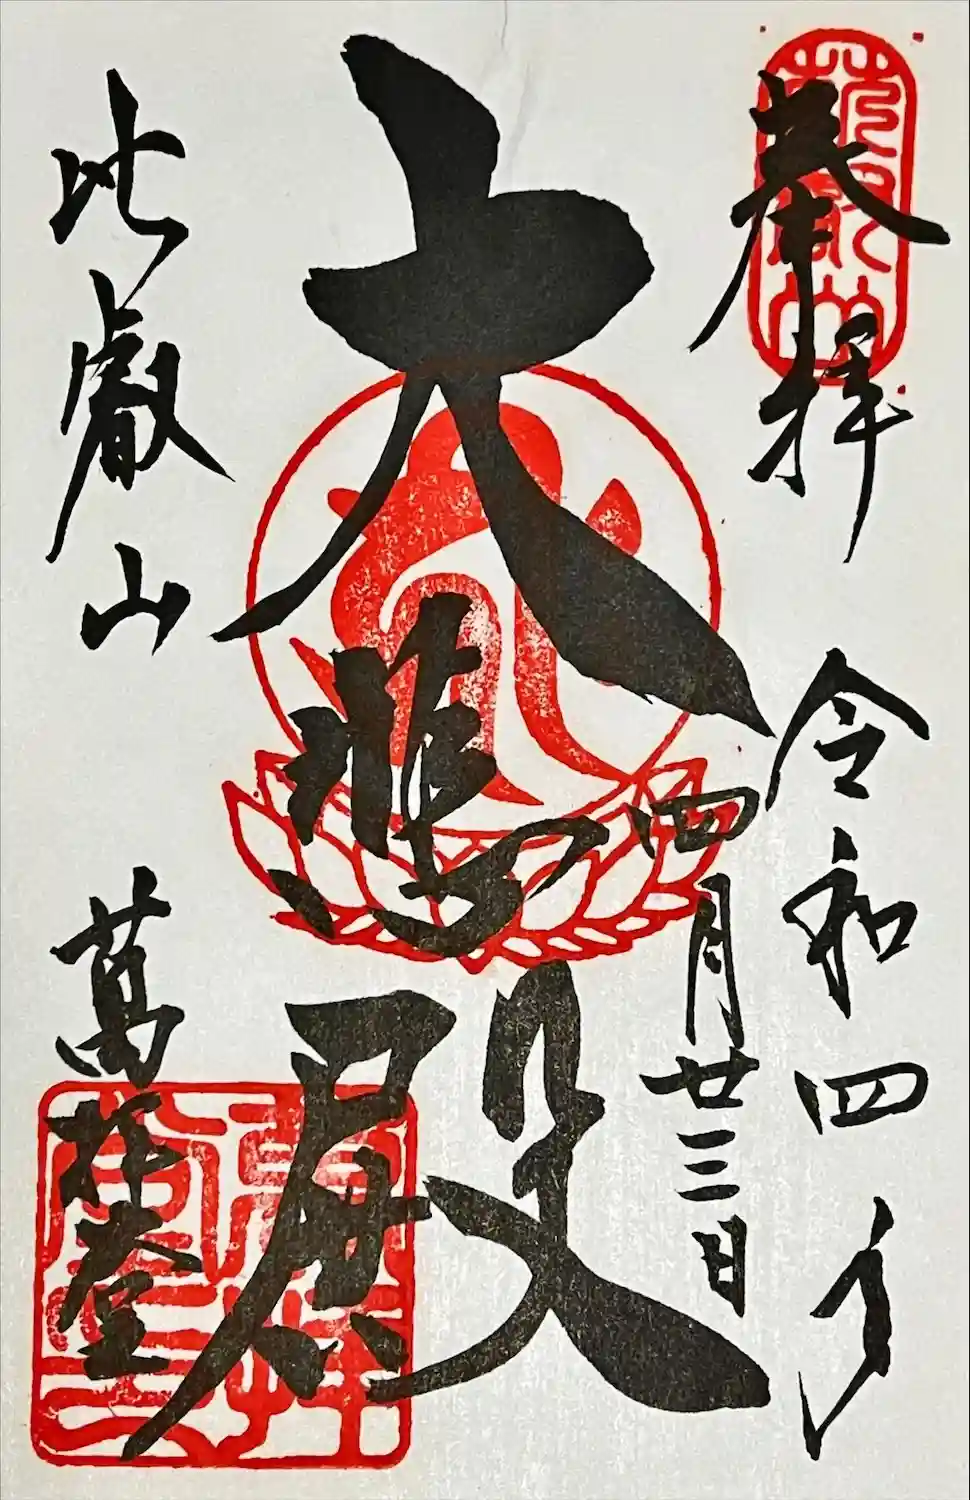 奉拝
令和四年
四月廿三日
大悲殿
比叡山
萬拝堂